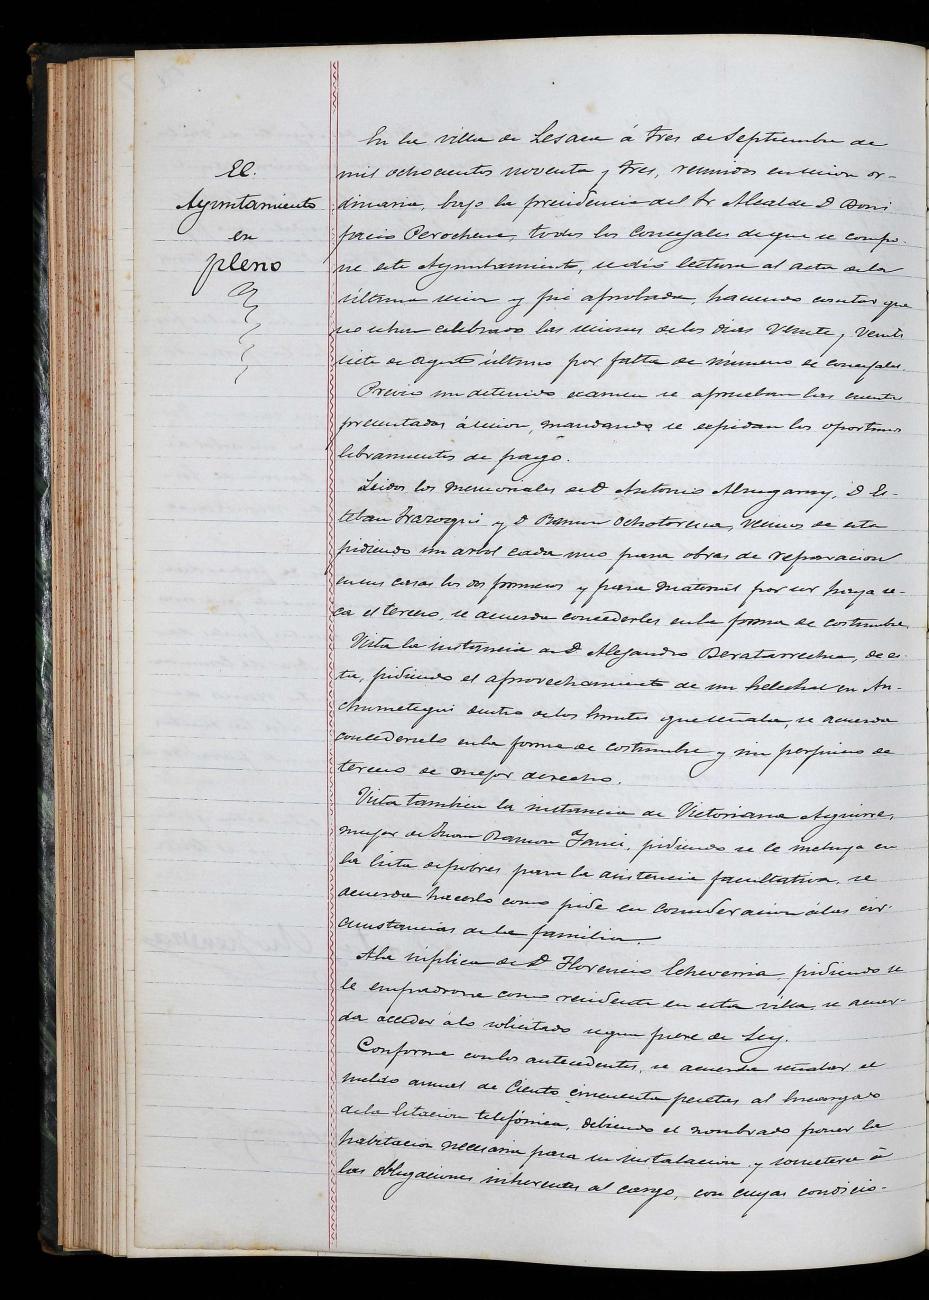 El
Ayuntamiento
en
pleno
En la villa de Lesaca á tres de Septiembre de
mil ochocientos noventa y tres, reunidos en sesion or-
dinaria, bajo la presidencia del Sr Alcalde D Boni
facio Perochena, todos los Concejales de que se compo-
ne este Ayuntamiento, se dió lectura al acta de la
última sesion y fué aprobada, haciendo constar que
no se han celebrado las sesiones de los dias Veinte y Veinti
siete de Agosto último por falta de número de concejales.
Previo un detenido examen se aprueban las cuentas
presentadas á sesion, mandando se expidan los oportunos
libramientos de pago.
Leidos los memoriales de D Antonio , D Es-
teban Irazoqui y D Ramon Ochotorena, vecinos de esta
pidiendo un arbol cada uno para obras de reparacion
en sus casas los dos primeros y para material por ser haya se-
ca el tercero, se acuerda concederles en la forma de costumbre.
Vista la instancia de D Alejandro Beratarrechea, de es-
ta, pidiendo el aprovechamiento de un helechal en An-
chumategui dentro de los limites que señala, se acuerda
concederselo en la forma de costumbre y sin perjuicio de
tercero de mejor derecho.
Vista tambien la instancia de Victoriana Aguirre,
mujer de Juan Ramon , pidiendo se le incluya en
la lista de pobres para la asistencia facultativa, se
acuerda hacerlo como pide en consideracion á las cir
cunstancias de la familia.
A la súplica de D Florencio Echeverria, pidiendo se
le empadrone como residente en esta villa, se acuer-
da acceder á lo solicitado segun fuere de Ley.
Conforme con los antecedentes, se acuerda señalar el
sueldo anual de Ciento cincuenta pesetas al Encargado
de la Estacion telefónica, debiendo el nombrado poner la
habitacion necesaria para su instalacion y someterse á
las obligaciones inherentes al cargo, con cuyas condicio-